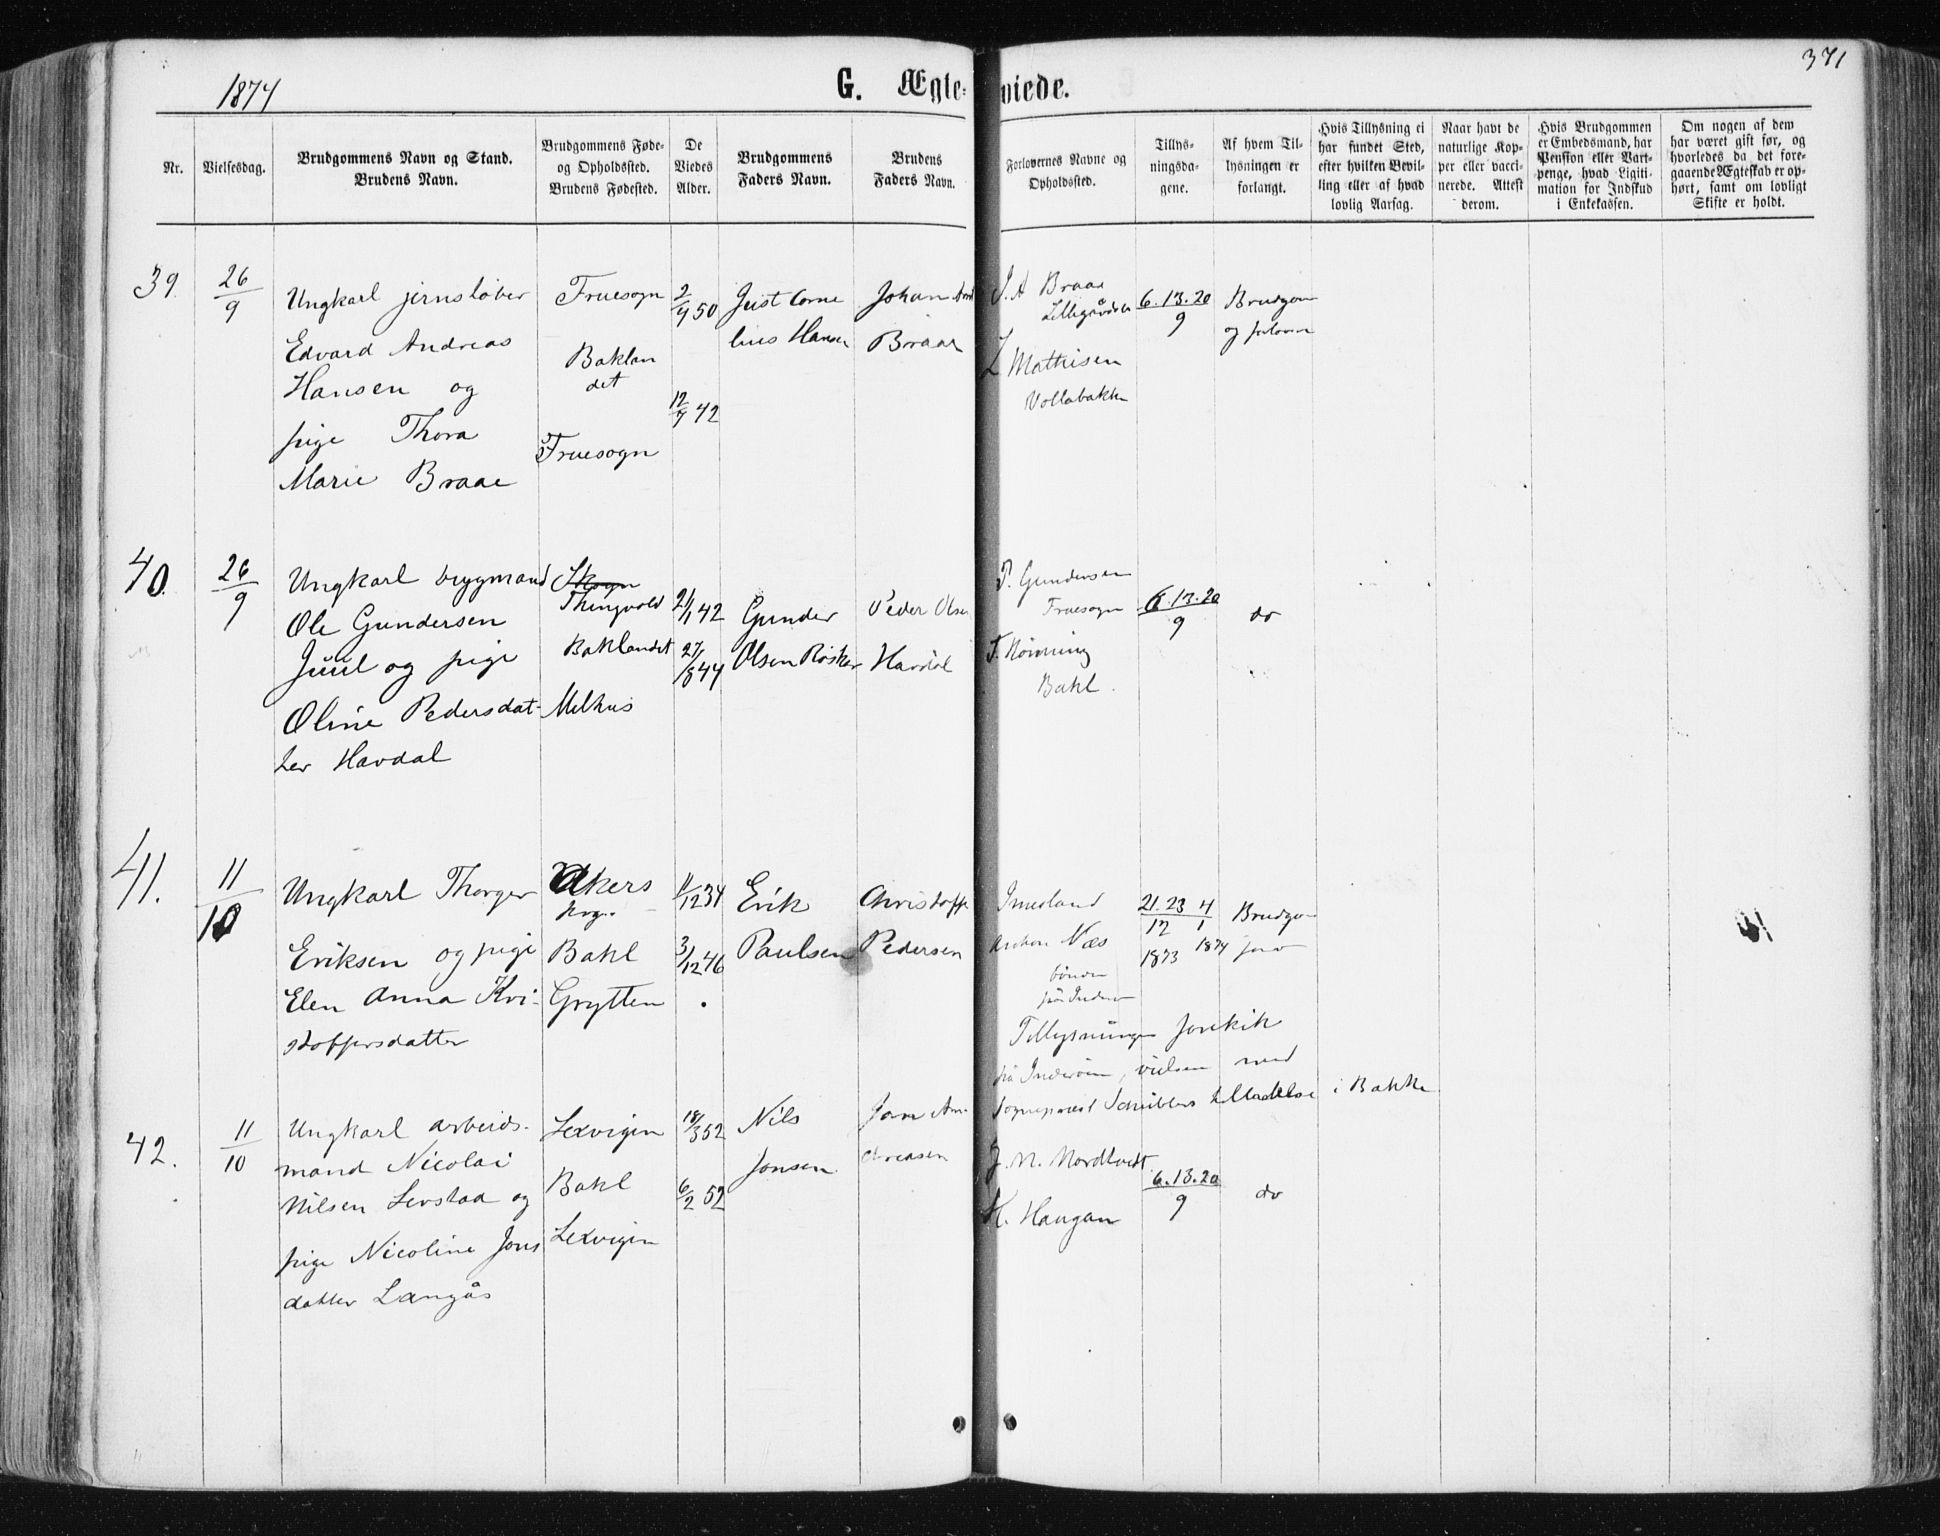 1874
G. Ægte-
viede.
371
Nr.
Vielsesdag.
Brudgommens Navn og Stand.
Brudens Navn.
Brudgommens Føde-
og Opholdssted.
Brudens Fødested.
De
Viedes
Alder.
Brudgommens
Faders Navn.
Brudens
Faders Navn.
Forlovernes Navne og
Opholdssted.
Tillys-
ningsda-
gene.
Af hvem Til-
lysningen er
forlangt.
Hvis Tillysning ei
har fundet Sted,
efter hvilken Bevil-
ling eller af hvad
lovlig Aarsag.
Naar havt de
naturlige Kop-
per eller vacci-
nerede. Attest
derom.
Hvis Brudgommen
er Embedsmand, har
Pension eller Vart-
penge, hvad Ligiti-
mation for Indskud
i Enkekassen.
Om nogen af dem
har været gift før, og
hvorledes da det fore-
gaaende Ægteskab er op-
hørt, samt om lovligt
Skifte er holdt.
39.
26/9
Ungkarl jernstøber
Edvard Andreas
Hansen og
pige Thora
Marie Braae
Fruesogn
Baklan
det
Fruesogn
2/4 50
12/7 42
Just Corne
lius Hansen
Johan
Braae
J. A Braae
L Mathisen
Vollabakke
6.13.20
9
Brudgom
og forlover
40.
26/9
Ungkarl brygmand
Ole Gundersen
Juul og pige
Oline Pedersdat-
ter Havdal
Thingvold
Baklandet
Melhus
21/1 42
27/8 44
Gunder
Olsen Røsker
Peder Olsen
Havdal
P. Gundersen
Fruesogn
T. Rønning
Bakl.
6.13.20
9
do
41.
11/10
Ungkarl Thorger
Eriksen og pige
Elen Anna Kri-
stoffersdatter
Akers
sogn
Bakl
Grytten
11/12 34
3/12 46
Erik
Paulsen
Christoffer
Pedersen
Næs
bønder
fra Inderøen
21.23 4
12 1
1873 1874
Brudgom
Tillysningen foregik
fra Inderøen, vielsen med
sogneprest Schüblers tilladelse i Bakke
42.
11/10
Ungkarl arbeids-
mand Nicolai
Nilsen Levstad og
pige Nicoline Jons
datter Langås
Lexvigen
Bakl
Lexvigen
18/3 52
6/2 52
Nils
Jonsen
Jon An-
dreasen
J. N. Nordtvedt
H. Haugan
6.13.20
9
do